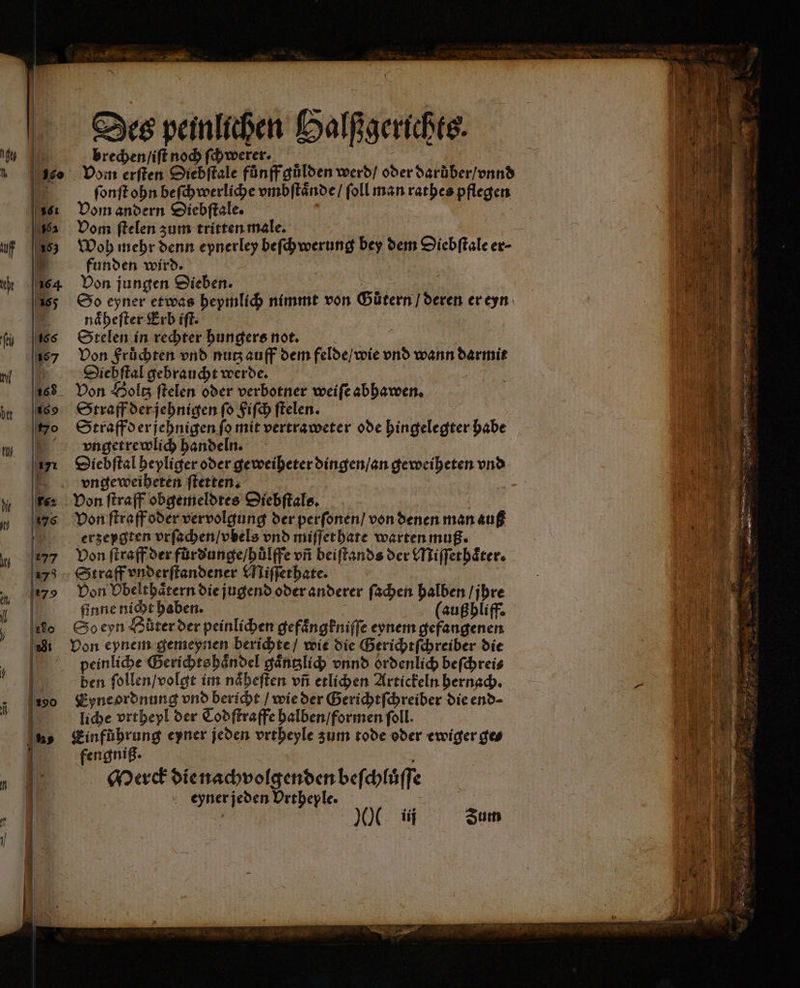 Des peinlichen Halßgerichts.
brechen/ist noch schwerer.
160 Vom ersten Diebstale fünff gülden werd/ oder darüber/vnnd
sonst ohn beschwerliche vmbstände/ soll man rathes pflegen
161 Vom andern Diebstale.
162 Vom stelen zum tritten male.
163 Woh mehr denn eynerley beschwerung bey dem Diebstale er-
funden wird.
164 Von jungen Dieben.
165 So eyner etwas heymlich nimmt von Gütern/ deren er eyn
nähester Erb ist.
166 Stelen in rechter hungers not.
167 Von Früchten vnd nutz auff dem felde/wie vnd wann darmit
Diebstal gebraucht werde.
168 Von Holtz stelen oder verbotner weise abhawen.
169 Straff der jehnigen so Fisch stelen.
170 Straff der jehnigen so mit vertraweter ode hingelegter habe
vngetrewlich handeln.
171 Diebstal heyliger oder geweiheter dingen/an geweiheten vnd
vngeweiheten stetten.
Von straff obgemeldtes Diebstals.
176 Von straff oder vervolgung der personen/ von denen man auß
erzeygten vrsachen/vbels vnd missethate warten muß.
177 Von straff der fürdunge/hülffe vñ beistands der Missethäter.
178 Straff vnderstandener Missethate.
179 Von Vbelthätern die jugend oder anderer sachen halben/jhre
sinne nicht haben. (außhliff.
180 So eyn Hüter der peinlichen gefängknisse eynem gefangenen
181 Von eynem gemeynen berichte/ wie die Gerichtschreiber die
peinliche Gerichtshändel gäntzlich vnnd ordenlich beschrei-
ben sollen/volgt im nähesten vñ etlichen Artickeln hernach.
190 Eyne ordnung vnd bericht/ wie der Gerichtschreiber die end-
liche vrtheyl der Todstraffe halben/formen soll.
Einführung eyner jeden vrtheyle zum tode oder ewiger ge-
fengniß.
Merck die nachvolgenden beschlüsse
eyner jeden Vrtheyle.
)()( iij Zum